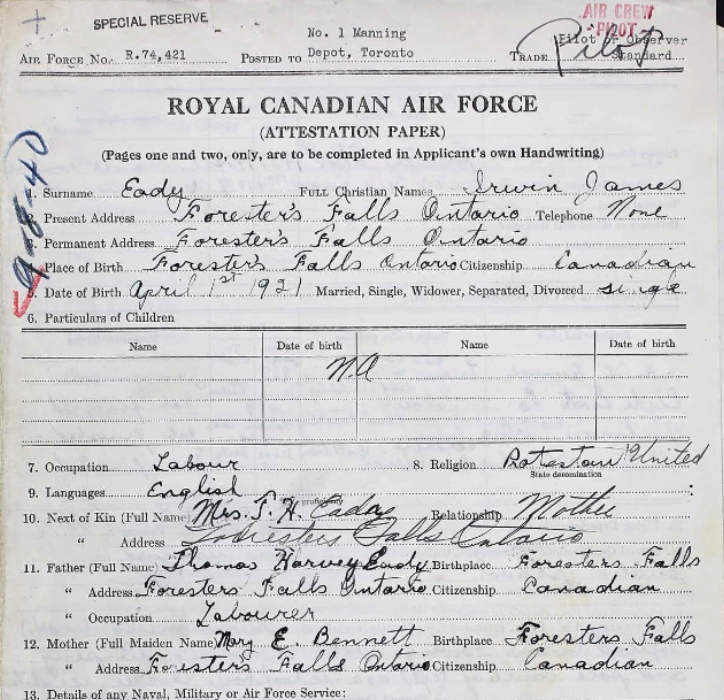 SPECIAL RESERVE
AIR CREW
PILOT
No. 1 Manning
Pilot or Observer
AIR FORCE No. R.74,421 POSTED TO Depot, Toronto TRADE Standard
Pilot
ROYAL CANADIAN AIR FORCE
(ATTESTATION PAPER)
(Pages one and two, only, are to be completed in Applicant's own Handwriting)
1. Surname Eady FULL Christian Names Irwin James
2. Present Address Forester's Falls Ontario Telephone None
3. Permanent Address Forester's Falls Ontario
Place of Birth Forester's Falls Ontario Citizenship Canadian
5. Date of Birth April 1st 1921 Married, Single, Widower, Separated, Divorced single
6. Particulars of Children
Name Date of birth Name Date of birth
N.A
7. Occupation Labour 8. Religion Protestant United
State denomination
9. Languages English
proficiency
10. Next of Kin (Full Name) Mrs. T. H. Eady Relationship Mother
" Address Foresters Falls Ontario
11. Father (Full Name) Thomas Harvey Eady Birthplace Foresters Falls
" Address Foresters Falls Ontario Citizenship Canadian
" Occupation Labourer
12. Mother (Full Maiden Name) Mary E. Bennett Birthplace Foresters Falls
" Address Forester's Falls Ontario Citizenship Canadian
13. Details of any Naval, Military or Air Force Service: